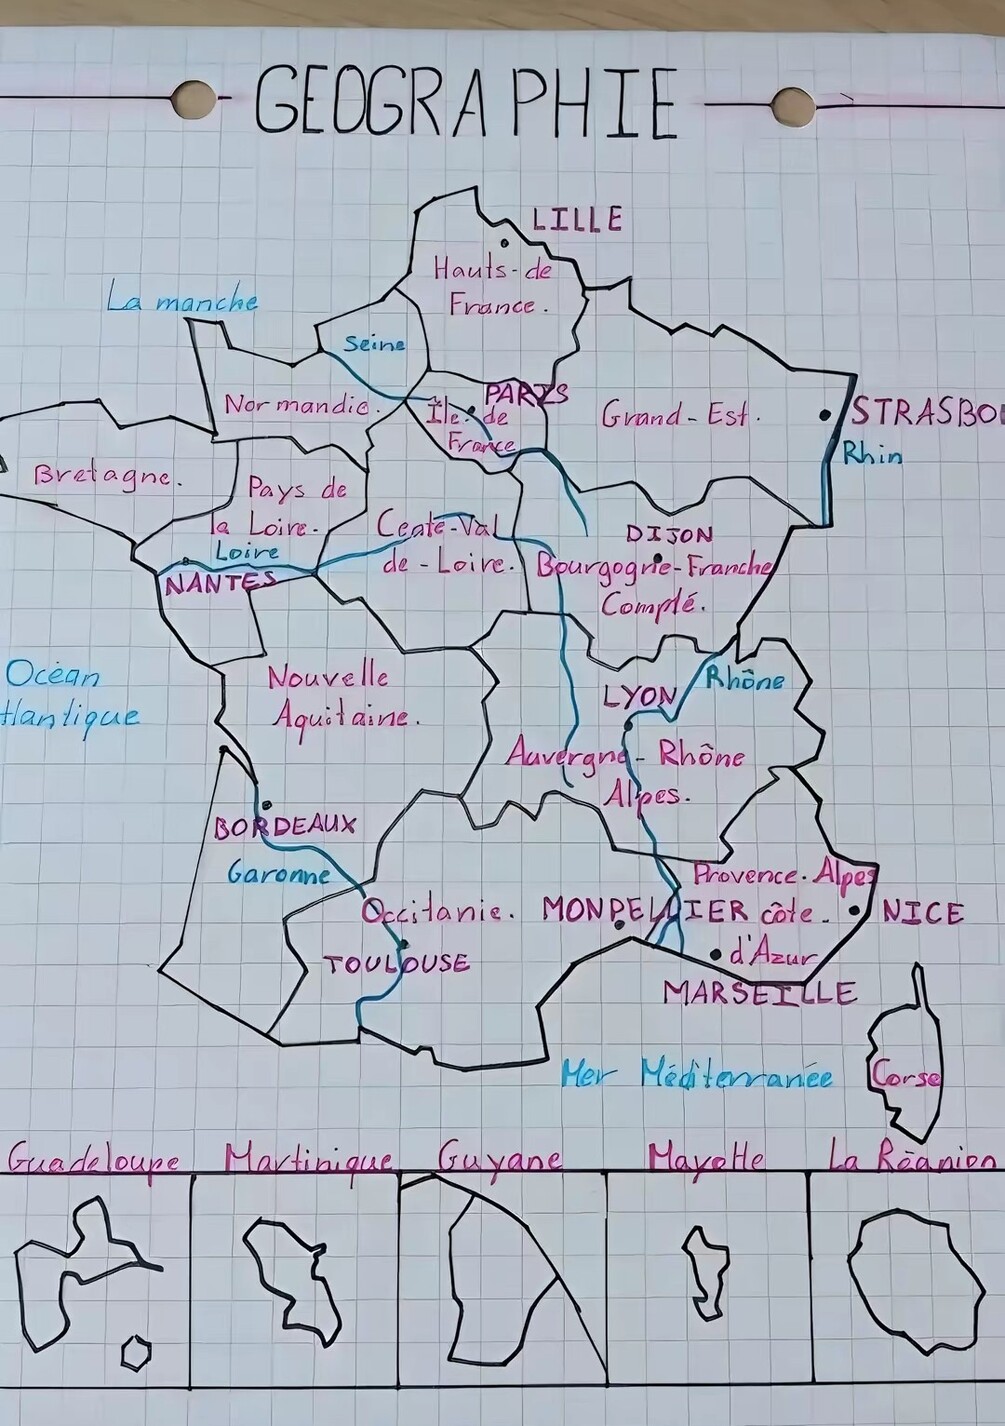 GEOGRAPHIE
LILLE
Hauts-de
France.
La manche
Seine
Normandie.
PARIS
Île de
France
Grand-Est.
STRASBO
Rhin
Bretagne.
Pays de
la Loire.
Loire
NANTES
Cente-Val
de-Loire.
DIJON
Bourgogne-Franche
Compté.
Océan
tlantique
Nouvelle
Aquitaine.
LYON
Rhône
Auvergne-Rhône
Alpes.
BORDEAUX
Garonne
Provence.Alpes
côte.
d'Azur
Occitanie.
MONPELLIER
NICE
TOULOUSE
MARSEILLE
Mer Méditerranée
Corse
Guadeloupe
Martinique
Guyane
Mayotte
La Réunion